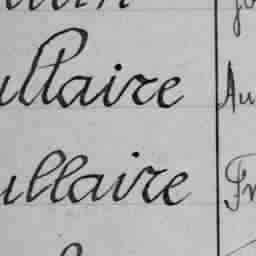 ullaire Au
ullaire Fr